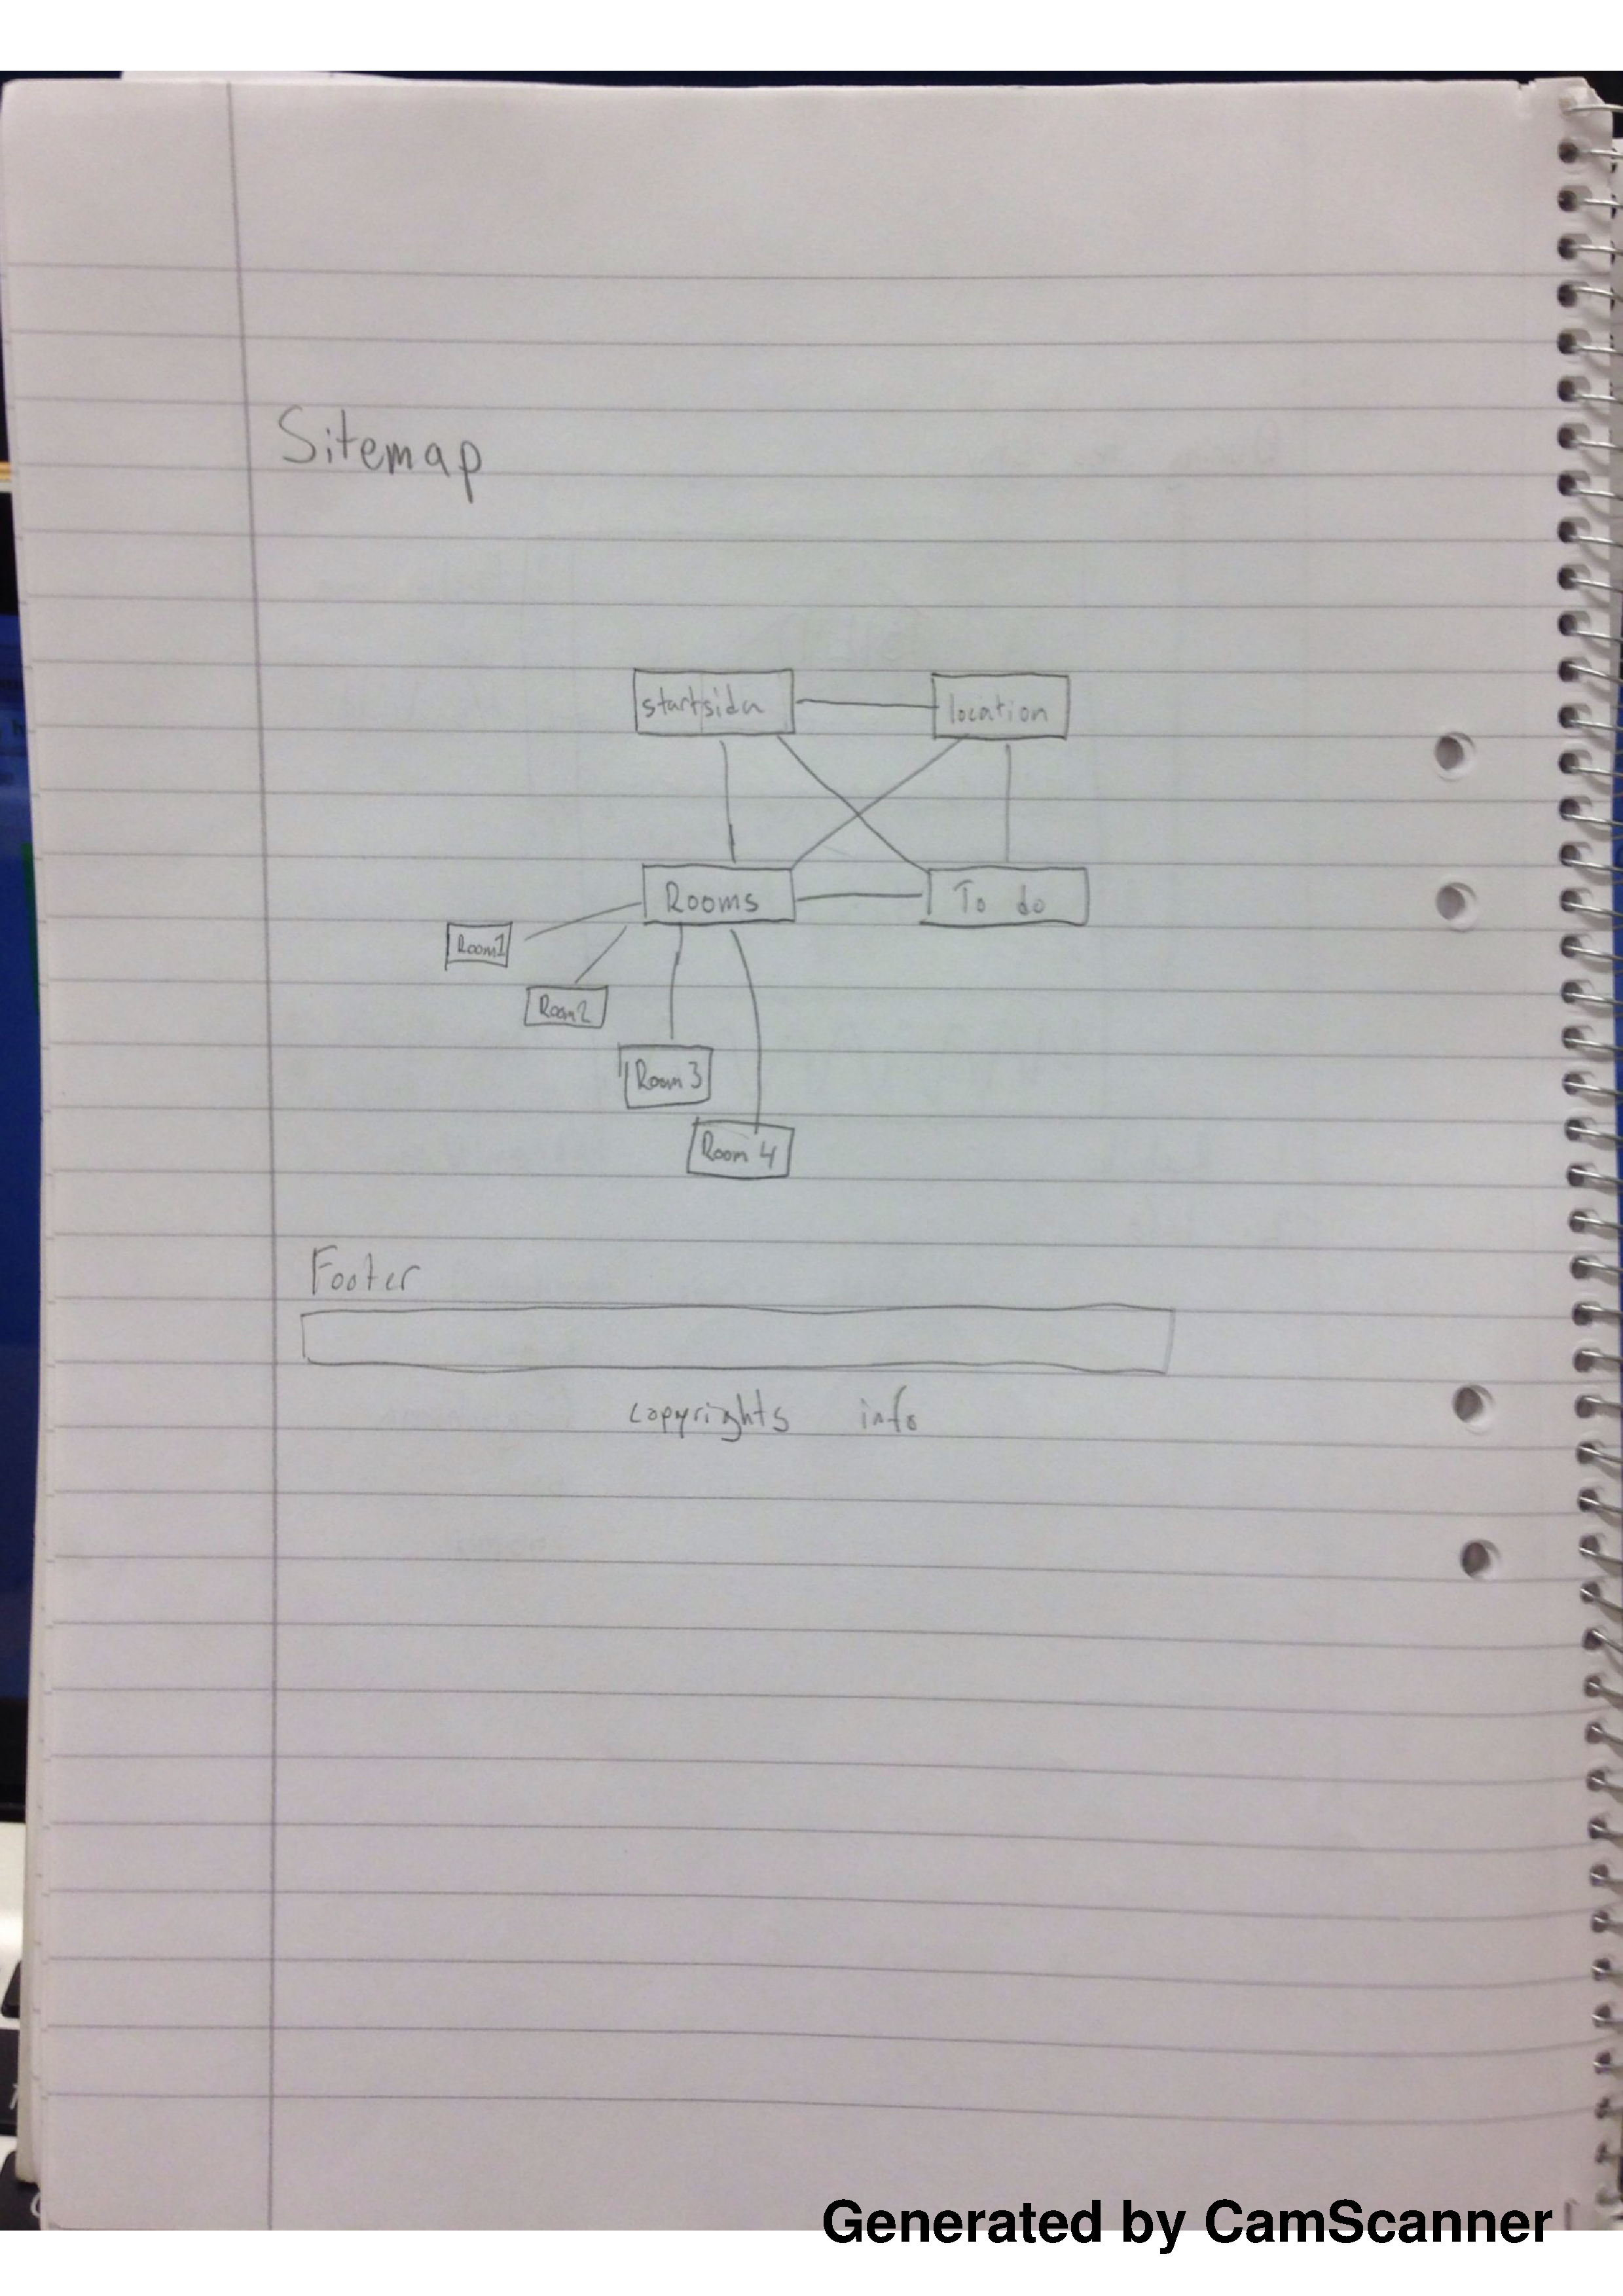 Sitemap
startsida location
Rooms To do
Room1
Room2
Room 3
Room 4
Footer
copyrights info
Generated by CamScanner